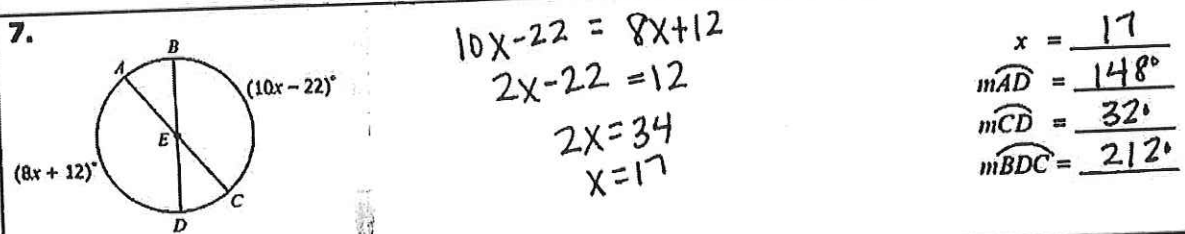 7.
B
A
(10x − 22)°
E
(8x + 12)°
C
D
10x-22 = 8x+12
2x-22 = 12
2x = 34
x = 17
x = 17
mAD = 148°
mCD = 32°
mBDC = 212°